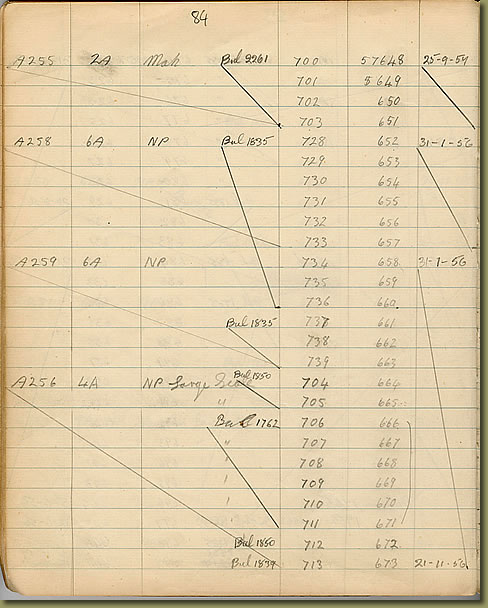 84
A255 2A Mah Bul 2261 700 57648 25-9-57
701 649
702 650
703 651
A258 6A NP Bul 1835 728 652 31-1-56
729 653
730 654
731 655
732 656
733 657
A259 6A NP 734 658 31-1-56
735 659
736 660
Bul 1835 737 661
738 662
739 663
A256 4A NP Large Seal Bul 1850 704 664
" 705 665
Bul 1762 706 666
" 707 667
" 708 668
" 709 669
" 710 670
711 671
Bul 1850 712 672
Bul 1839 713 673 21-11-56